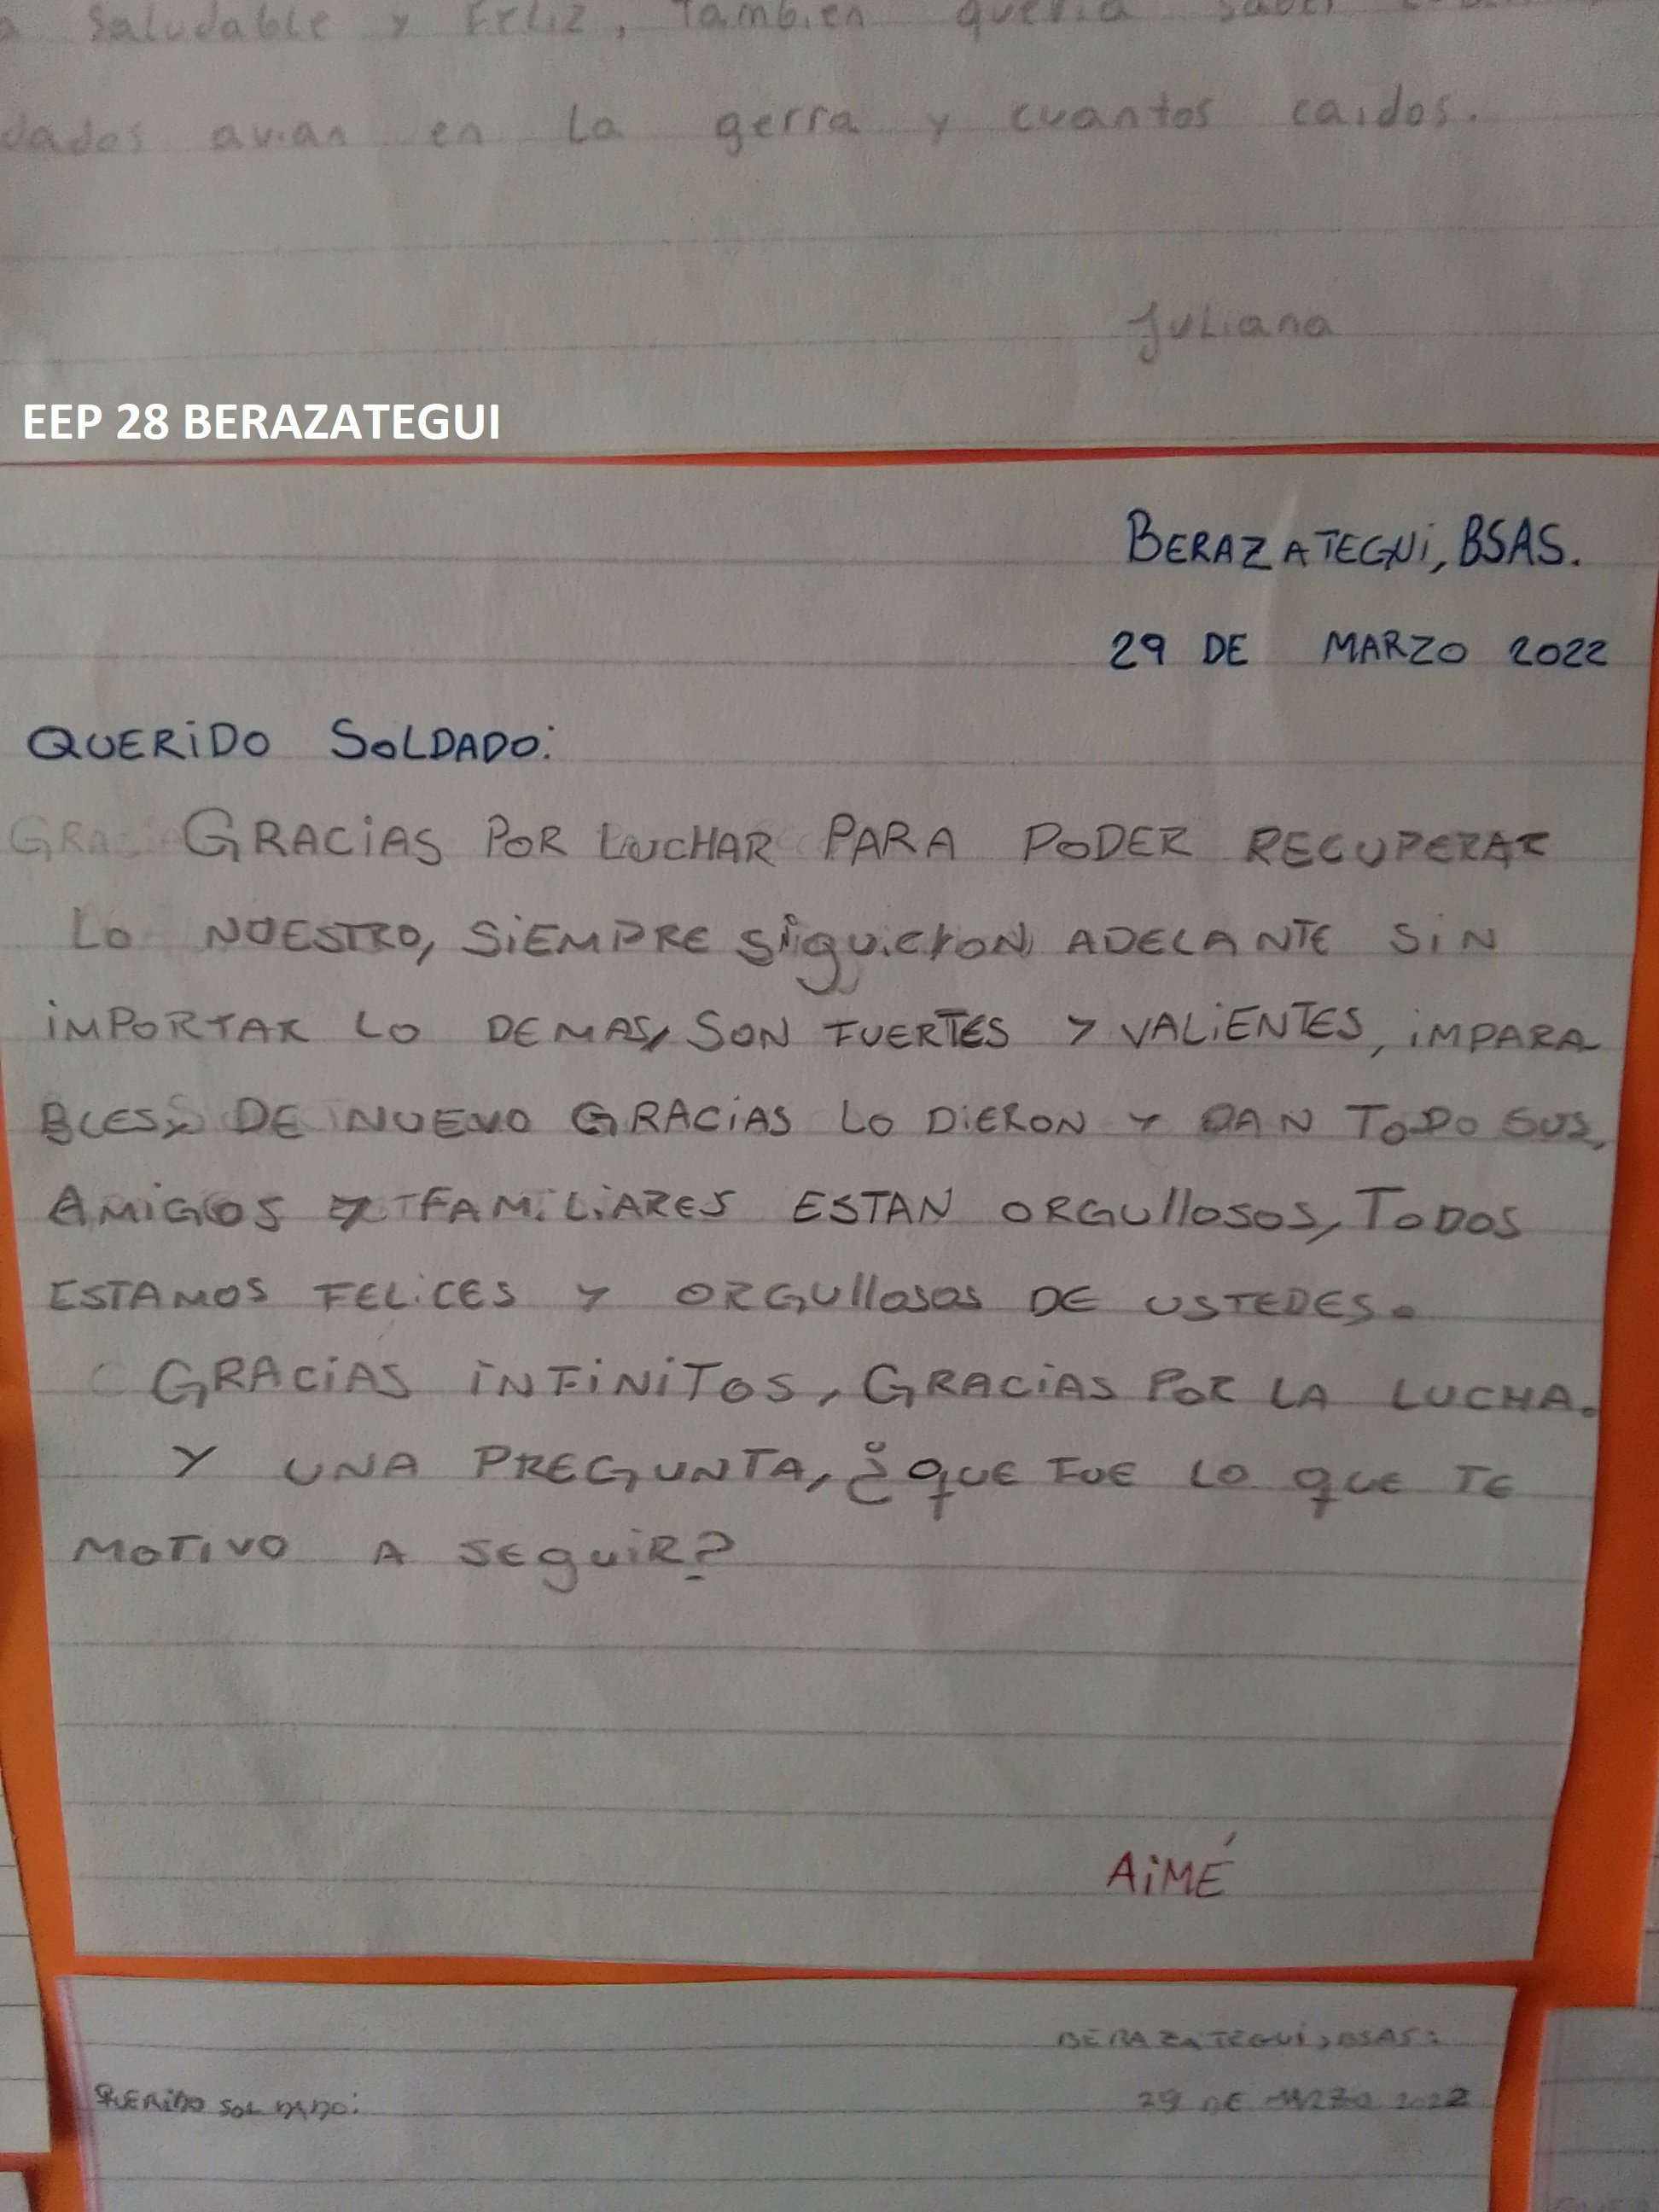 saludable y Feliz, Tambien queria saber
dados avian en La gerra y cuantos caidos.
Juliana
EEP 28 BERAZATEGUI
BERAZATEGUi, BSAS.
29 DE MARZO 2022
QUERiDO SOLDADO:
GRACiAS POR LUCHAR PARA PODER RECUPERAR
LO NUESTRO, SiEMPRE siguieron ADELANTE SiN
iMPORTAR LO DEMAS, SON FUERTES Y VALiENTES, iMPARA
BLES, DE NUEVO GRACiAS LO DiERON Y DAN TODO SUS,
AMiGOS Y FAMiLiARES ESTAN ORGUllOSOS, TODOS
ESTAMOS FELiCES Y ORGUllosos DE USTEDES.
GRACiAS iNFiNiTOS, GRACiAS POR LA LUCHA.
Y UNA PREGUNTA, ¿QUE FUE LO QUE TE
MOTIVO A SEguiR?
AiMÉ
BERAZATEGUi, BSAS:
QUERiDO SOLDADO:
29 DE MARZO 2022